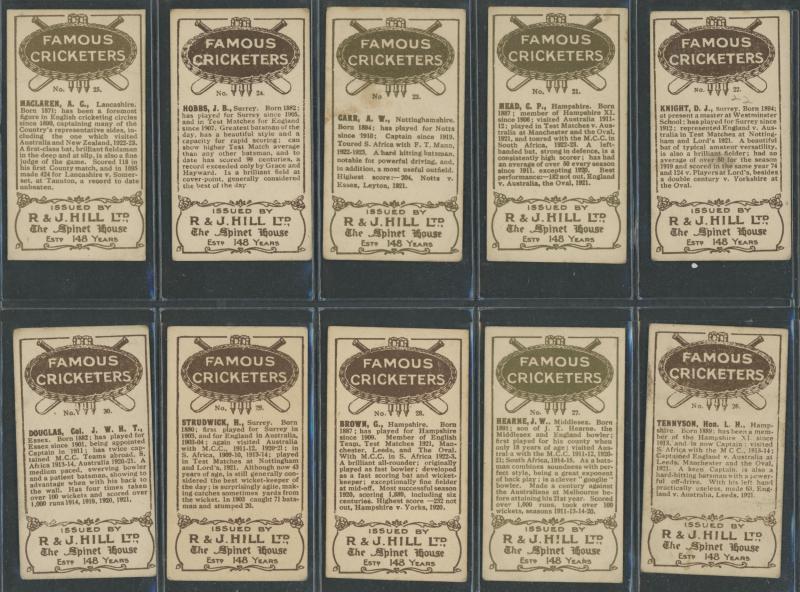 FAMOUS
CRICKETERS
No. 25.
MACLAREN, A. C., Lancashire.
Born 1871; has been a foremost
figure in English cricketing circles
since 1890, captaining many of the
Country's representative sides, in-
cluding the one which visited
Australia and New Zealand, 1922-23.
A first-class bat, brilliant fieldsman
in the deep and at slip, is also a fine
judge of the game. Scored 118 in
his first County match, and in 1895
made 424 for Lancashire v. Somer-
set, at Taunton, a record to date
unbeaten.
ISSUED BY
R & J. HILL LTD.
The Spinet House
ESTD 148 YEARS
FAMOUS
CRICKETERS
No. 24.
HOBBS, J. B., Surrey. Born 1882;
has played for Surrey since 1905,
and in Test Matches for England
since 1907. Greatest batsman of the
day, has a beautiful style and a
capacity for rapid scoring; can
show higher Test Match average
than any other batsman, and to
date has scored 99 centuries, a
record exceeded only by Grace and
Hayward. Is a brilliant field at
cover-point, generally considered
the best of the day
ISSUED BY
R & J. HILL LTD.
The Spinet House
ESTD 148 YEARS
FAMOUS
CRICKETERS
No. 23.
CARR, A. W., Nottinghamshire.
Born 1894; has played for Notts
since 1910; Captain since 1919.
Toured S. Africa with F. T. Mann,
1922-1923. A hard hitting batsman,
notable for powerful driving, and,
in addition, a most useful outfield.
Highest score:—204, Notts v.
Essex, Leyton, 1921.
ISSUED BY
R & J. HILL LTD.
The Spinet House
ESTD 148 YEARS
FAMOUS
CRICKETERS
No. 21.
MEAD, C. P., Hampshire. Born
1887; member of Hampshire XI.
since 1906; visited Australia 1911-
12; played in Test Matches v. Aus-
tralia at Manchester and the Oval,
1921, and toured with the M.C.C. in
South Africa, 1922-23. A left-
handed bat, strong in defence, is a
consistently high scorer; has had
an average of over 50 every season
since 1911, excepting 1920. Best
performance—182 not out, England
v. Australia, the Oval, 1921.
ISSUED BY
R & J. HILL LTD.
The Spinet House
ESTD 148 YEARS
FAMOUS
CRICKETERS
No. 22.
22
KNIGHT, D. J., Surrey. Born 1894;
at present a master at Westminster
School; has played for Surrey since
1912; represented England v. Aus-
tralia in Test Matches at Notting-
ham and Lord's 1921. A beautiful
bat of typical amateur versatility,
is also a brilliant fielder; had an
average of over 50 for the season
1919 and scored in the same year 74
and 124 v. Players at Lord's, besides
a double century v Yorkshire at
the Oval.
ISSUED BY
R & J. HILL LTD.
The Spinet House
ESTD 148 YEARS
FAMOUS
CRICKETERS
No. 30.
DOUGLAS, Col. J. W. H. T.,
Essex. Born 1882; has played for
Essex since 1901, being appointed
Captain in 1911; has twice cap-
tained M.C.C. Teams abroad, S.
Africa 1913-14, Australia 1920-21; a
medium paced, swerving bowler
and a patient batsman, showing to
advantage when with his back to
the wall. Has four times taken
over 100 wickets and scored over
1,000 runs 1914, 1919, 1920, 1921.
ISSUED BY
R & J. HILL LTD.
The Spinet House
ESTD 148 YEARS
FAMOUS
CRICKETERS
No. 29.
STRUDWICK, H., Surrey. Born
1880; first played for Surrey in
1903, and for England in Australia,
1903-04; again visited Australia
with M.C.C. 1911, 1920-21; in
S. Africa, 1909-10, 1913-14; played
in Test Matches at Nottingham
and Lord's, 1921. Although now 43
years of age, is still generally con-
sidered the best wicket-keeper of
the day; is surprisingly agile, mak-
ing catches sometimes yards from
the wicket. In 1903 caught 71 bats-
man and stumped 20.
ISSUED BY
R & J. HILL LTD.
The Spinet House
ESTD 148 YEARS
FAMOUS
CRICKETERS
No. 28.
BROWN, G., Hampshire. Born
1887; has played for Hampshire
since 1909. Member of English
Team, Test Matches 1921, Man-
chester, Leeds, and The Oval.
With M.C.C. in S. Africa 1922-3.
A brilliant all-rounder; originally
played as fast bowler; developed
as a fast scoring bat and wicket-
keeper; exceptionally fine fielder
at mid-off. Most successful season
1920, scoring 1,889, including six
centuries. Highest score —232 not
out, Hampshire v. Yorks, 1920.
ISSUED BY
R & J. HILL LTD.
The Spinet House
ESTD 148 YEARS
FAMOUS
CRICKETERS
No. 27.
HEARNE, J. W., Middlesex. Born
1891; son of J. T. Hearne, the
Middlesex and England bowler;
first played for his county when
only 18 years of age; visited Aus-
tralia with the M.C.C. 1911-12, 1920-
21; South Africa, 1914-15. As a bats-
man combines soundness with per-
fect style, being a great exponent
of back play; is a clever "googlie"
bowler. Made a century against
the Australians at Melbourne be-
fore attaining his 21st year. Scored
over 1,000 runs, took over 100
wickets, seasons 1911-13-14-20.
ISSUED BY
R & J. HILL LTD.
The Spinet House
ESTD 148 YEARS
FAMOUS
CRICKETERS
No. 26.
TENNYSON, Hon. L. H., Hamp-
shire. Born 1889; has been a mem-
ber of the Hampshire XI. since
1913, and is now Captain; visited
S. Africa with the M.C.C., 1913-14;
Captained England v. Australia at
Leeds, Manchester and the Oval,
1921. A keen Captain, is also a
hard-hitting batsman with a power-
ful off-drive. With his left hand
practically useless, made 63, Eng-
land v. Australia, Leeds, 1921.
ISSUED BY
R & J. HILL LTD.
The Spinet House
ESTD 148 YEARS